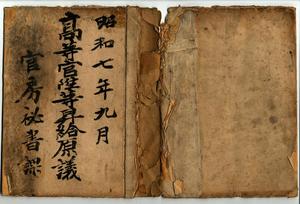 昭和七年九月
高等官陞等昇給原議
官房秘書課